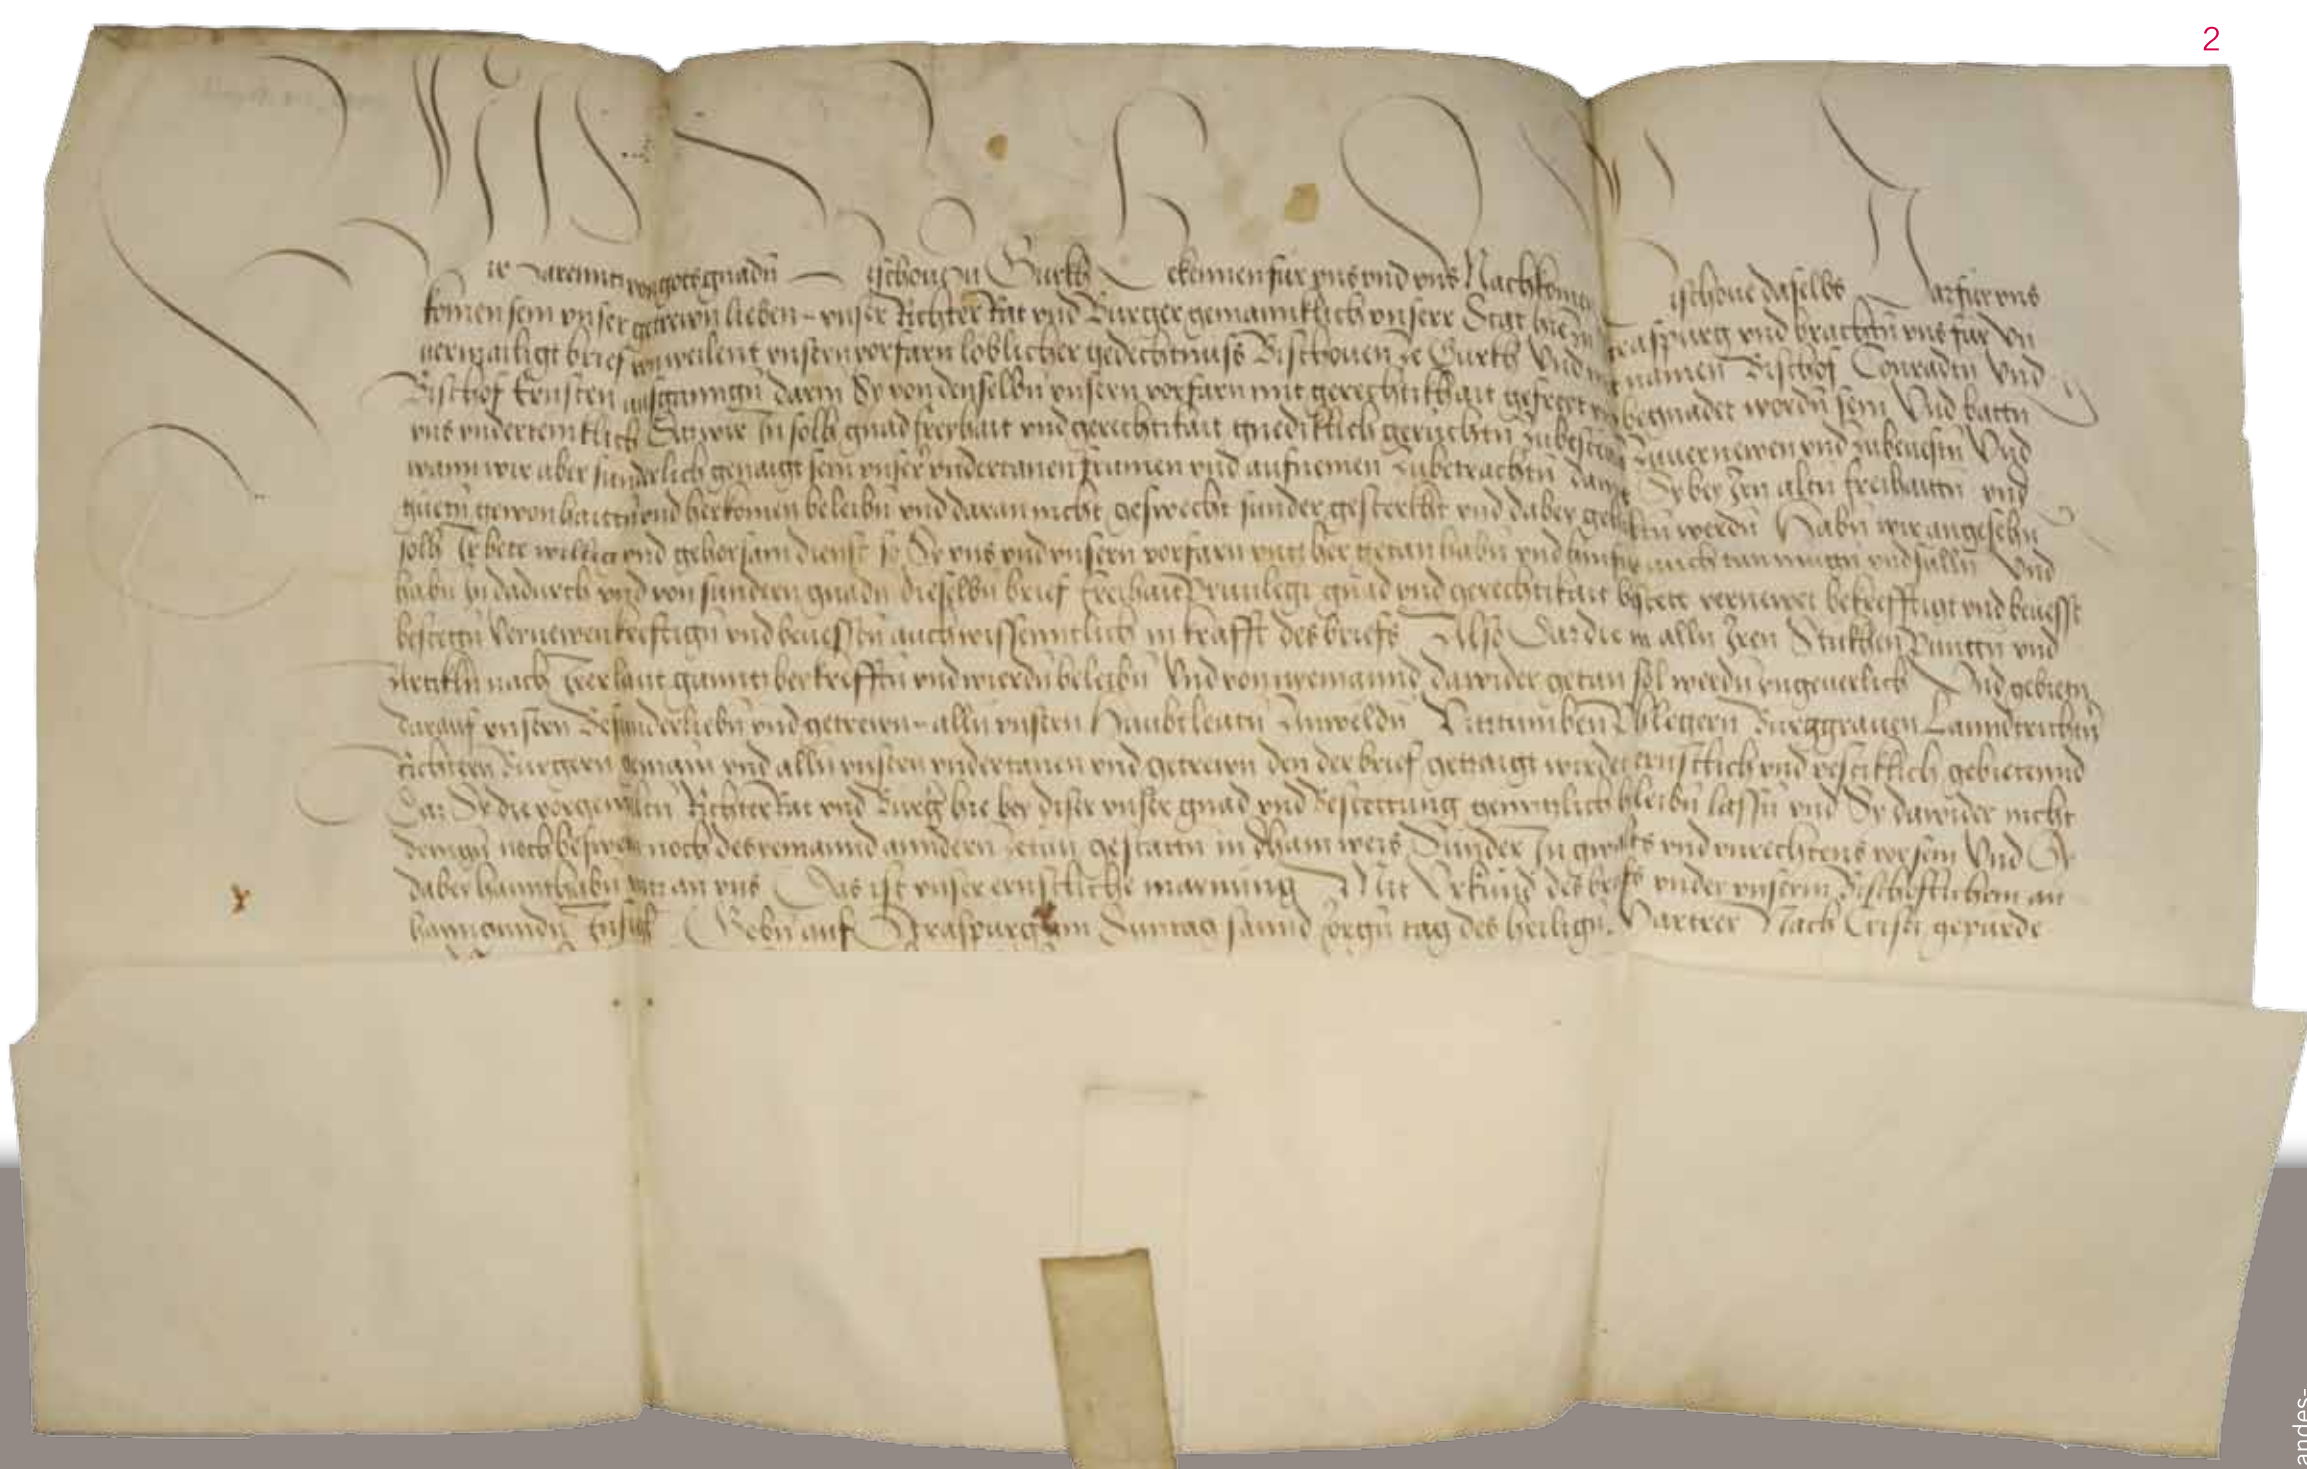 2
Wir Laurentz von gots gnadn Bischoue zu Gurkh Bekennen fur vns vnd vns Nachkomen Bischoue daselbs Das fur vns
komen sein vnser getrewn lieben vnser Richter Rat vnd Burger gemainklich vnserr Stat hie zu Straspurg vnd brachtn vns fur Vn
uermailigt brief von weilent vnsern vorfarn loblicher gedechtnuss Bischouen ze Gurkh Vnd mit namen Bischof Conradtn Vnd
Bischof Ernsten ausgangn darin Sy von denselbn vnsern vorfarn mit gerechtikhait gefreyt vnd begnadet wordn sein Vnd battn
vns vndertenikhlich Daz wir In solh gnad freyhait vnd gerechtikait gnediklich geruchtn zubestetn zuuernewen vnd zubeuestn Vnd
wann wir aber sunderlich genaigt sein vnser vndertanen frumen vnd aufnemen zubetrachtn damit Sy bey Iren altn freihaittn vnd
guetn gewonhaittn vnd herkomen beleibn vnd daran nicht geswecht sunder gesterkht vnd dabey gehaltn werdn Habn wir angesehn
solh Ir bete willig vnd gehorsam dienst so Sy vns vnd vnsern vorfarn vntz her getan habn vnd hinfur auch tun mugn vnd sulln Vnd
habn In dadurch vnd von sundern gnadn dieselbn brief freyhait Priuilegi gnad vnd gerechtikait bestett vernewet bekrefftigt vnd beuesst
bestettn Vernewen kreftign vnd beuessten auch wissenntlich in krafft des briefs Also Daz die in alln Iren Stukhen Punttn vnd
Artikln nach Irer laut gannz bey krefftn vnd wierdn beleibn Vnd von nyemannd dawider getan sol werdn vngeuerlich Vnd gebietn
darauf vnsern Besunderliebn vnd getrewn alln vnsern Haubtleutn Anweldn Vitztumben Phlegern Burggrauen Lanndrichtern
Richtern Burgern gemain vnd alln vnsern vndertanen vnd getrewn den der brief getzaigt wirdet ernstlich vnd vestiklich gebietennd
Daz Sy die vorgenanten Richter Rat vnd Burger hie bey diser vnser gnad vnd Bestettung genntzlich bleibn lassn vnd Sy dawider nicht
dringn noch besweren noch des yemannd anndern zetun gestattn in dhain weis Sunder In gwalts vnd vnrechtens vor sein Vnd Sy
dabey hannthabn vntz an vns Das ist vnser ernstliche maynung Mit Vrkund des briefs vnder vnserm Bischoflichem an
hanngundn Insigl Gebn auf Straspurg am Suntag sannd Jorgn tag des heilign Martrer Nach Cristi gepurde
andes-